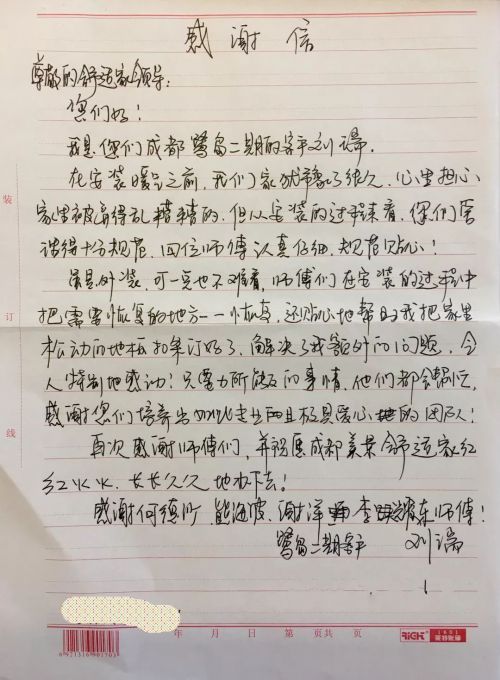 感谢信
尊敬的舒适家领导：
您们好！
我是您们成都鹭岛二期的客户刘瑞。
在安装暖气之前，我们家犹豫了很久，心里担心
家里被弄得乱糟糟的，但从安装的过程来看，你们层
得十分规范，四位师傅认真仔细，规范贴心！
虽是外装，可一点也不难看，师傅们在安装的过程中
把需要恢复的地方一一恢复，还贴心地帮我把家里
松动的地板扣条订好了，解决了我额外的问题，令
人特别地感动！只要力所能及的事情，他们都会帮忙，
感谢您们培养出如此专业而且极具爱心地的团队！
再次感谢师傅们，并祝愿成都美景舒适家红
红火火、长长久久地办下去！
感谢何德 熊海波、谢泽 李 东师傅！
鹭岛二期客户 刘瑞
装
订
线
年 月 日 第 页共 页
RiCH 1801
6921316901703